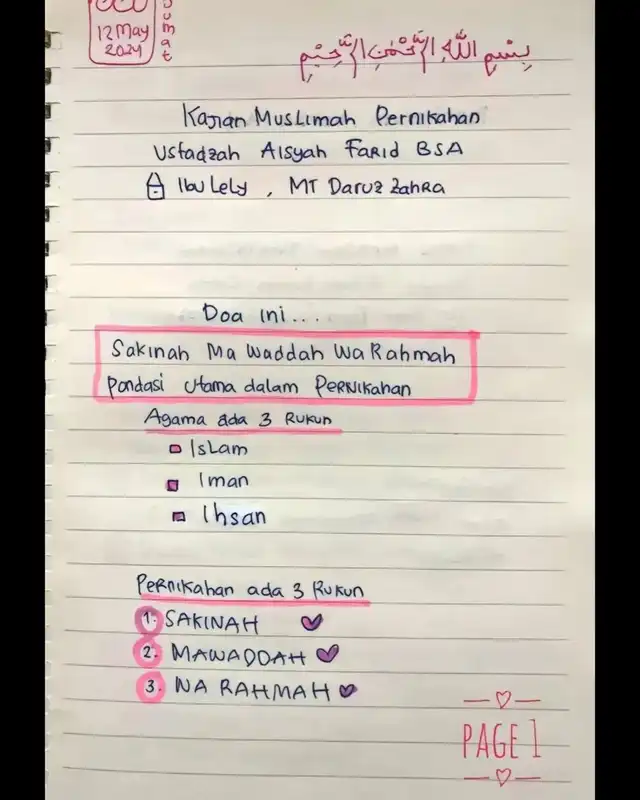 12 May
2024
Jumat
بِسْمِ اللَّهِ الرَّحْمَٰنِ الرَّحِيمِ
Kajian Muslimah Pernikahan
Ustadzah Aisyah Farid BSA
Ibu Lely, MT Daruz Zahra
Doa ini...
Sakinah Ma Waddah Wa Rahmah
Pondasi Utama dalam PERNIKAHAN
Agama ada 3 Rukun
Islam
Iman
Ihsan
Pernikahan ada 3 Rukun
1. SAKINAH
2. MAWADDAH
3. WA RAHMAH
PAGE 1